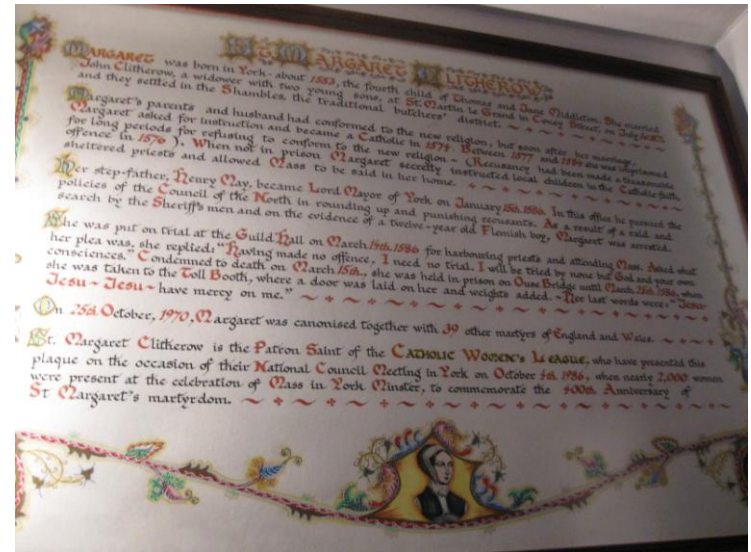 St MARGARET CLITHEROW
MARGARET was born in York about 1553, the fourth child of Thomas and Jane Middleton. She married
John Clitherow, a widower with two young sons, at St. Martin le Grand in Coney Street, on July 1st 1571,
and they settled in the Shambles, the traditional butchers' district.
Margaret's parents and husband had conformed to the new religion, but soon after her marriage,
Margaret asked for instruction and became a Catholic in 1574. Between 1577 and 1584 she was imprisoned
for long periods for refusing to conform to the new religion - (Recusancy had been made a treasonable
offence in 1576 ). When not in prison Margaret secretly instructed local children in the Catholic faith,
sheltered priests and allowed Mass to be said in her home.
Her step-father, Henry May, became Lord Mayor of York on January 15th. 1586. In this office he pursued the
policies of the Council of the North in rounding up and punishing recusants. As a result of a raid and
search by the Sheriff's men and on the evidence of a twelve-year old Flemish boy, Margaret was arrested.
She was put on trial at the Guild Hall on March 14th. 1586 for harbouring priests and attending Mass. Asked what
her plea was, she replied: "Having made no offence, I need no trial. I will be tried by none but God and your own
consciences." Condemned to death on March 15th., she was held in prison on Ouse Bridge until March 25th. 1586, when
she was taken to the Toll Booth, where a door was laid on her and weights added. - Her last words were: "Jesu-
Jesu - Jesu - have mercy on me."
On 25th. October, 1970, Margaret was canonised together with 39 other martyrs of England and Wales.
St. Margaret Clitherow is the Patron Saint of the CATHOLIC WOMEN'S LEAGUE, who have presented this
plaque on the occasion of their National Council Meeting in York on October 4th. 1986, when nearly 2,000 women
were present at the celebration of Mass in York Minster, to commemorate the 400th. Anniversary of
St Margaret's martyrdom.